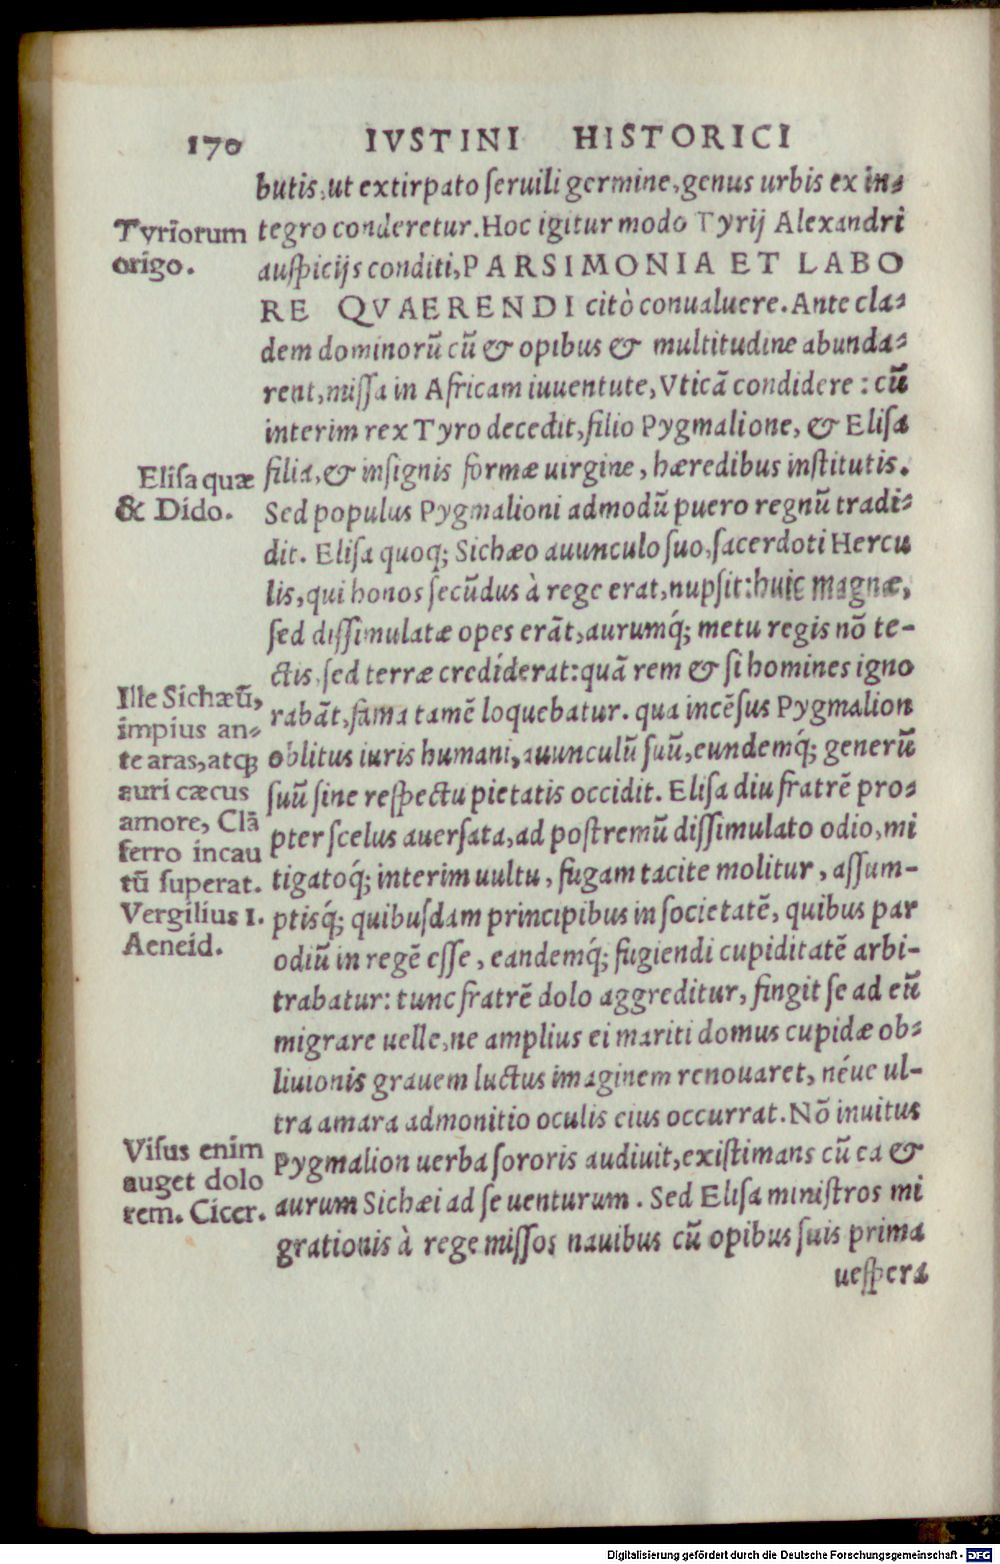 170 IVSTINI HISTORICI
butis, ut extirpato ſeruili germine, genus urbis ex in⸗
tegro conderetur. Hoc igitur modo Tyrij Alexandri
auſpicijs conditi, PARSIMONIA ET LABO
RE QVAERENDI citò conualuere. Ante cla⸗
dem dominorũ cũ & opibus & multitudine abunda⸗
rent, miſſa in Africam iuuentute, Vticã condidere : cũ
interim rex Tyro decedit, filio Pygmalione, & Eliſa
filia, & inſignis formæ uirgine, hæredibus inſtitutis.
Sed populus Pygmalioni admodũ puero regnũ tradi⸗
dit. Eliſa quoq; Sichæo auunculo ſuo, ſacerdoti Hercu
lis, qui honos ſecũdus à rege erat, nupſit: huic magnæ,
ſed diſſimulatæ opes erãt, aurumq́; metu regis nõ te-
ctis, ſed terræ crediderat: quã rem & ſi homines igno
rabãt, fama tamẽ loquebatur. qua incẽſus Pygmalion
oblitus iuris humani, auunculũ ſuũ, eundemq́; generũ
ſuũ ſine reſpectu pietatis occidit. Eliſa diu fratrẽ pro⸗
pter ſcelus auerſata, ad poſtremũ diſſimulato odio, mi
tigatoq́; interim uultu, fugam tacite molitur, aſſum-
ptisq́; quibuſdam principibus in ſocietatẽ, quibus par
odiũ in regẽ eſſe, eandemq́; fugiendi cupiditatẽ arbi-
trabatur: tunc fratrẽ dolo aggreditur, fingit ſe ad eũ
migrare uelle, ne amplius ei mariti domus cupidæ ob⸗
liuionis grauem luctus imaginem renouaret, néue ul-
tra amara admonitio oculis eius occurrat. Nõ inuitus
Pygmalion uerba ſororis audiuit, exiſtimans cũ ea &
aurum Sichæi ad ſe uenturum. Sed Eliſa miniſtros mi
grationis à rege miſſos nauibus cũ opibus ſuis prima
ueſpera
Tyriorum
origo.
Eliſa quæ
& Dido.
Ille Sichæũ,
impius an⸗
te aras, atq;
auri cæcus
amore, Clã
ferro incau
tũ ſuperat.
Vergilius 1.
Aeneid.
Viſus enim
auget dolo
rem. Cicer.
Digitalisierung gefördert durch die Deutsche Forschungsgemeinschaft - DFG